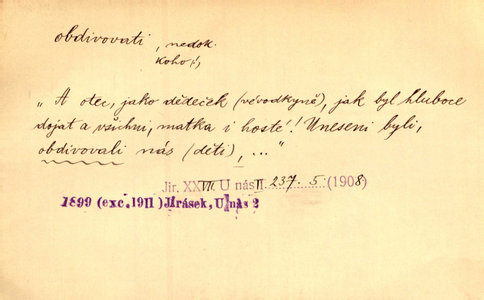 obdivovati, nedok.
koho!,
„A otec, jako dědeček (vévodkyně), jak byl hluboce
dojat a všichni, matka i hosté! Uneseni byli,
obdivovali nás (děti), ..."
Jir. XXVII. U nás II. 237. 5. (1908)
1899 (exc. 1911) Jirásek, U nás 2